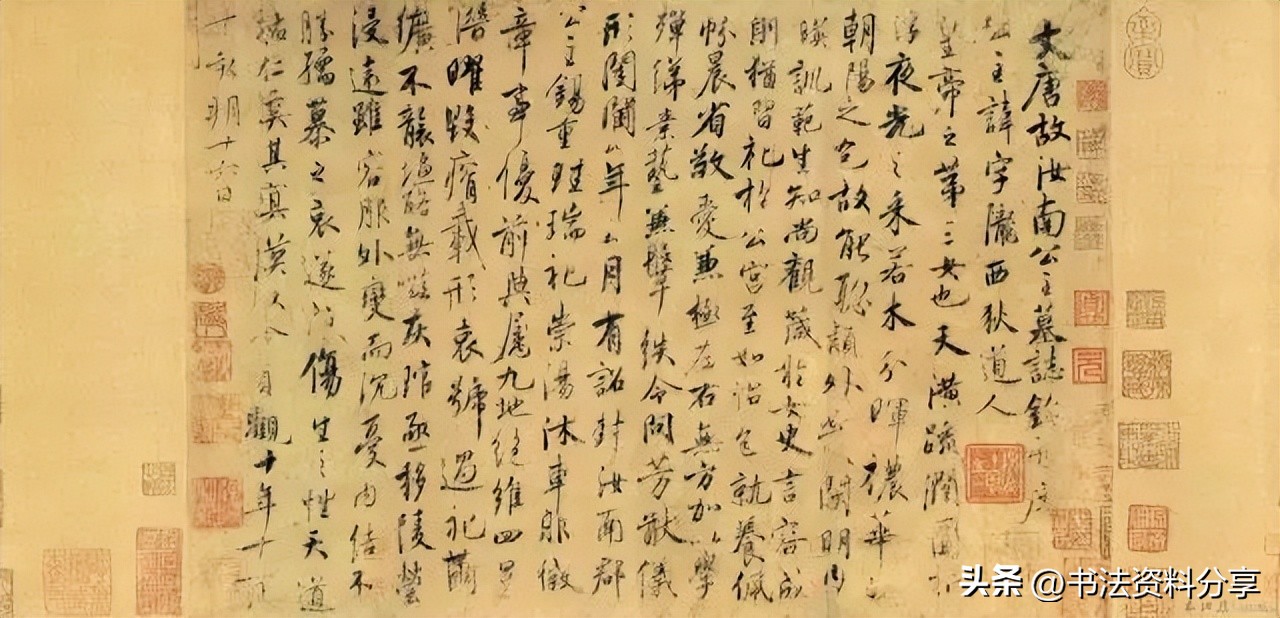 大唐故汝南公主墓誌銘并序
公主諱字隴西狄道人
皇帝之第三女也天潢疏潤圓折
浮夜光之采若木分暉穠華照
朝陽之色故能聰穎外發閑明內
暎訓範生知尚觀箴於女史言容成
則猶習礼於公宮至如怡色就養佩
帉晨省敬愛兼極左右無方加以學
殫綈素藝兼鞶紩令問芳猷儀
形閨閫年月有詔封汝南郡
公主錫重珪瑞礼崇湯沐車服徽
章事優前典屬九地絕維四星
潛曜毀瘠載形哀號過礼繭
纊不襲塩酪無嗞灰琯亟移陵塋
浸遠雖容服外變而沉憂內結不
勝孺慕之哀遂成傷生之性天道
祐仁奚其冥漠以今貞觀十年十一月
丁亥朔十六日
头条 @书法资料分享